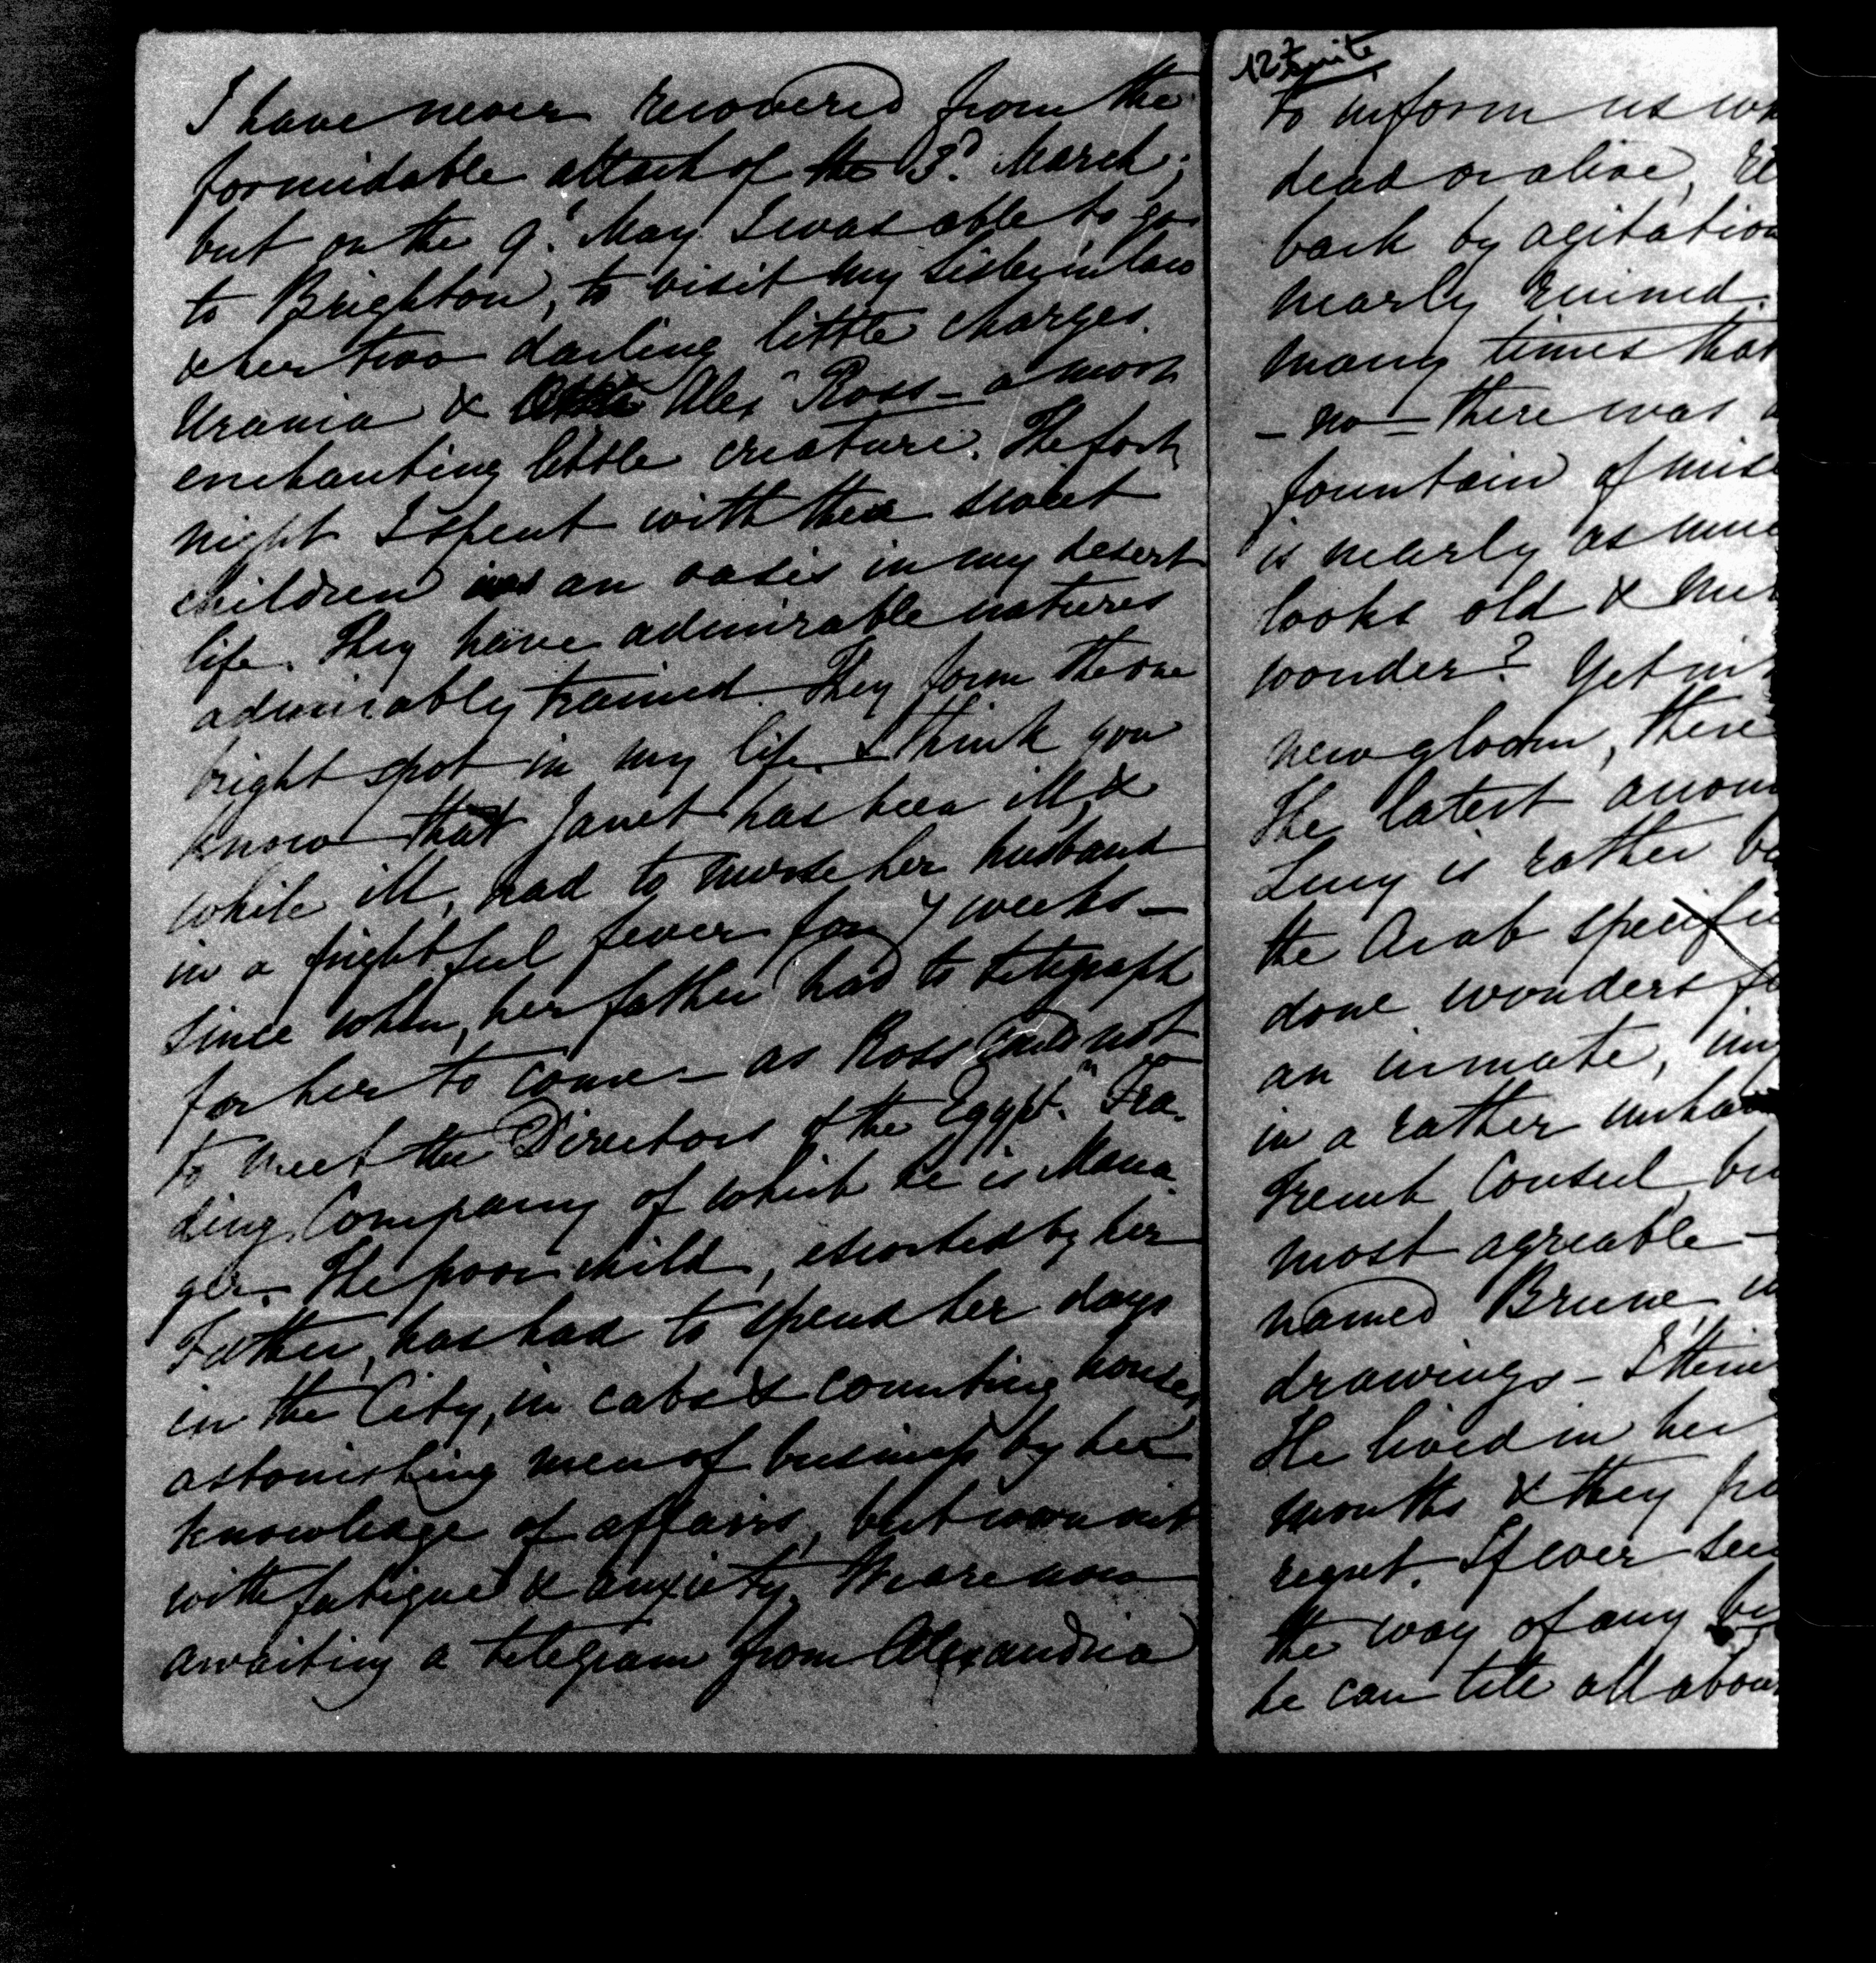 I have never recovered from the
formidable attack of the 3d. March;
but on the 9th. May I was able to go
to Brighton, to visit my sister in law
& her two darling little charges.
Urania & Alexr Ross — a most
enchanting little creature. The fort
night I spent with these sweet
children was an oasis in my desert
life. They have admirable natures
admirably trained. They form the one
bright spot in my life. I think you
know that Janet has been ill, &
while ill, had to nurse her husband
in a frightful fever for 7 weeks —
since when, her father had to telegraph
for her to come — as Ross could not
to meet the Directors of the Egyptn Tra-
ding Company of which he is Mana-
ger. The poor child, escorted by her
Father, has had to spend her days
in the City, in cabs & counting houses,
astonishing men of business by her
knowledge of affairs, but worn out
with fatigue & anxiety. We are now
awaiting a telegram from Alexandria
127 suite
to inform us wh
dead or alive,
back by agitation
nearly ruined.
many times that
— no — there was
fountain of mise
is nearly as muc
looks old &
wonder? Yet in
new gloom, there
The latest accoun
Lucy is rather be
the Arab specific
done wonders fo
an inmate,
in a rather unha
French Consul, bu
most agreable —
named Brune,
drawings — I thin
He lived in her
months & they
regret. If ever
the way of any
he can tell all about